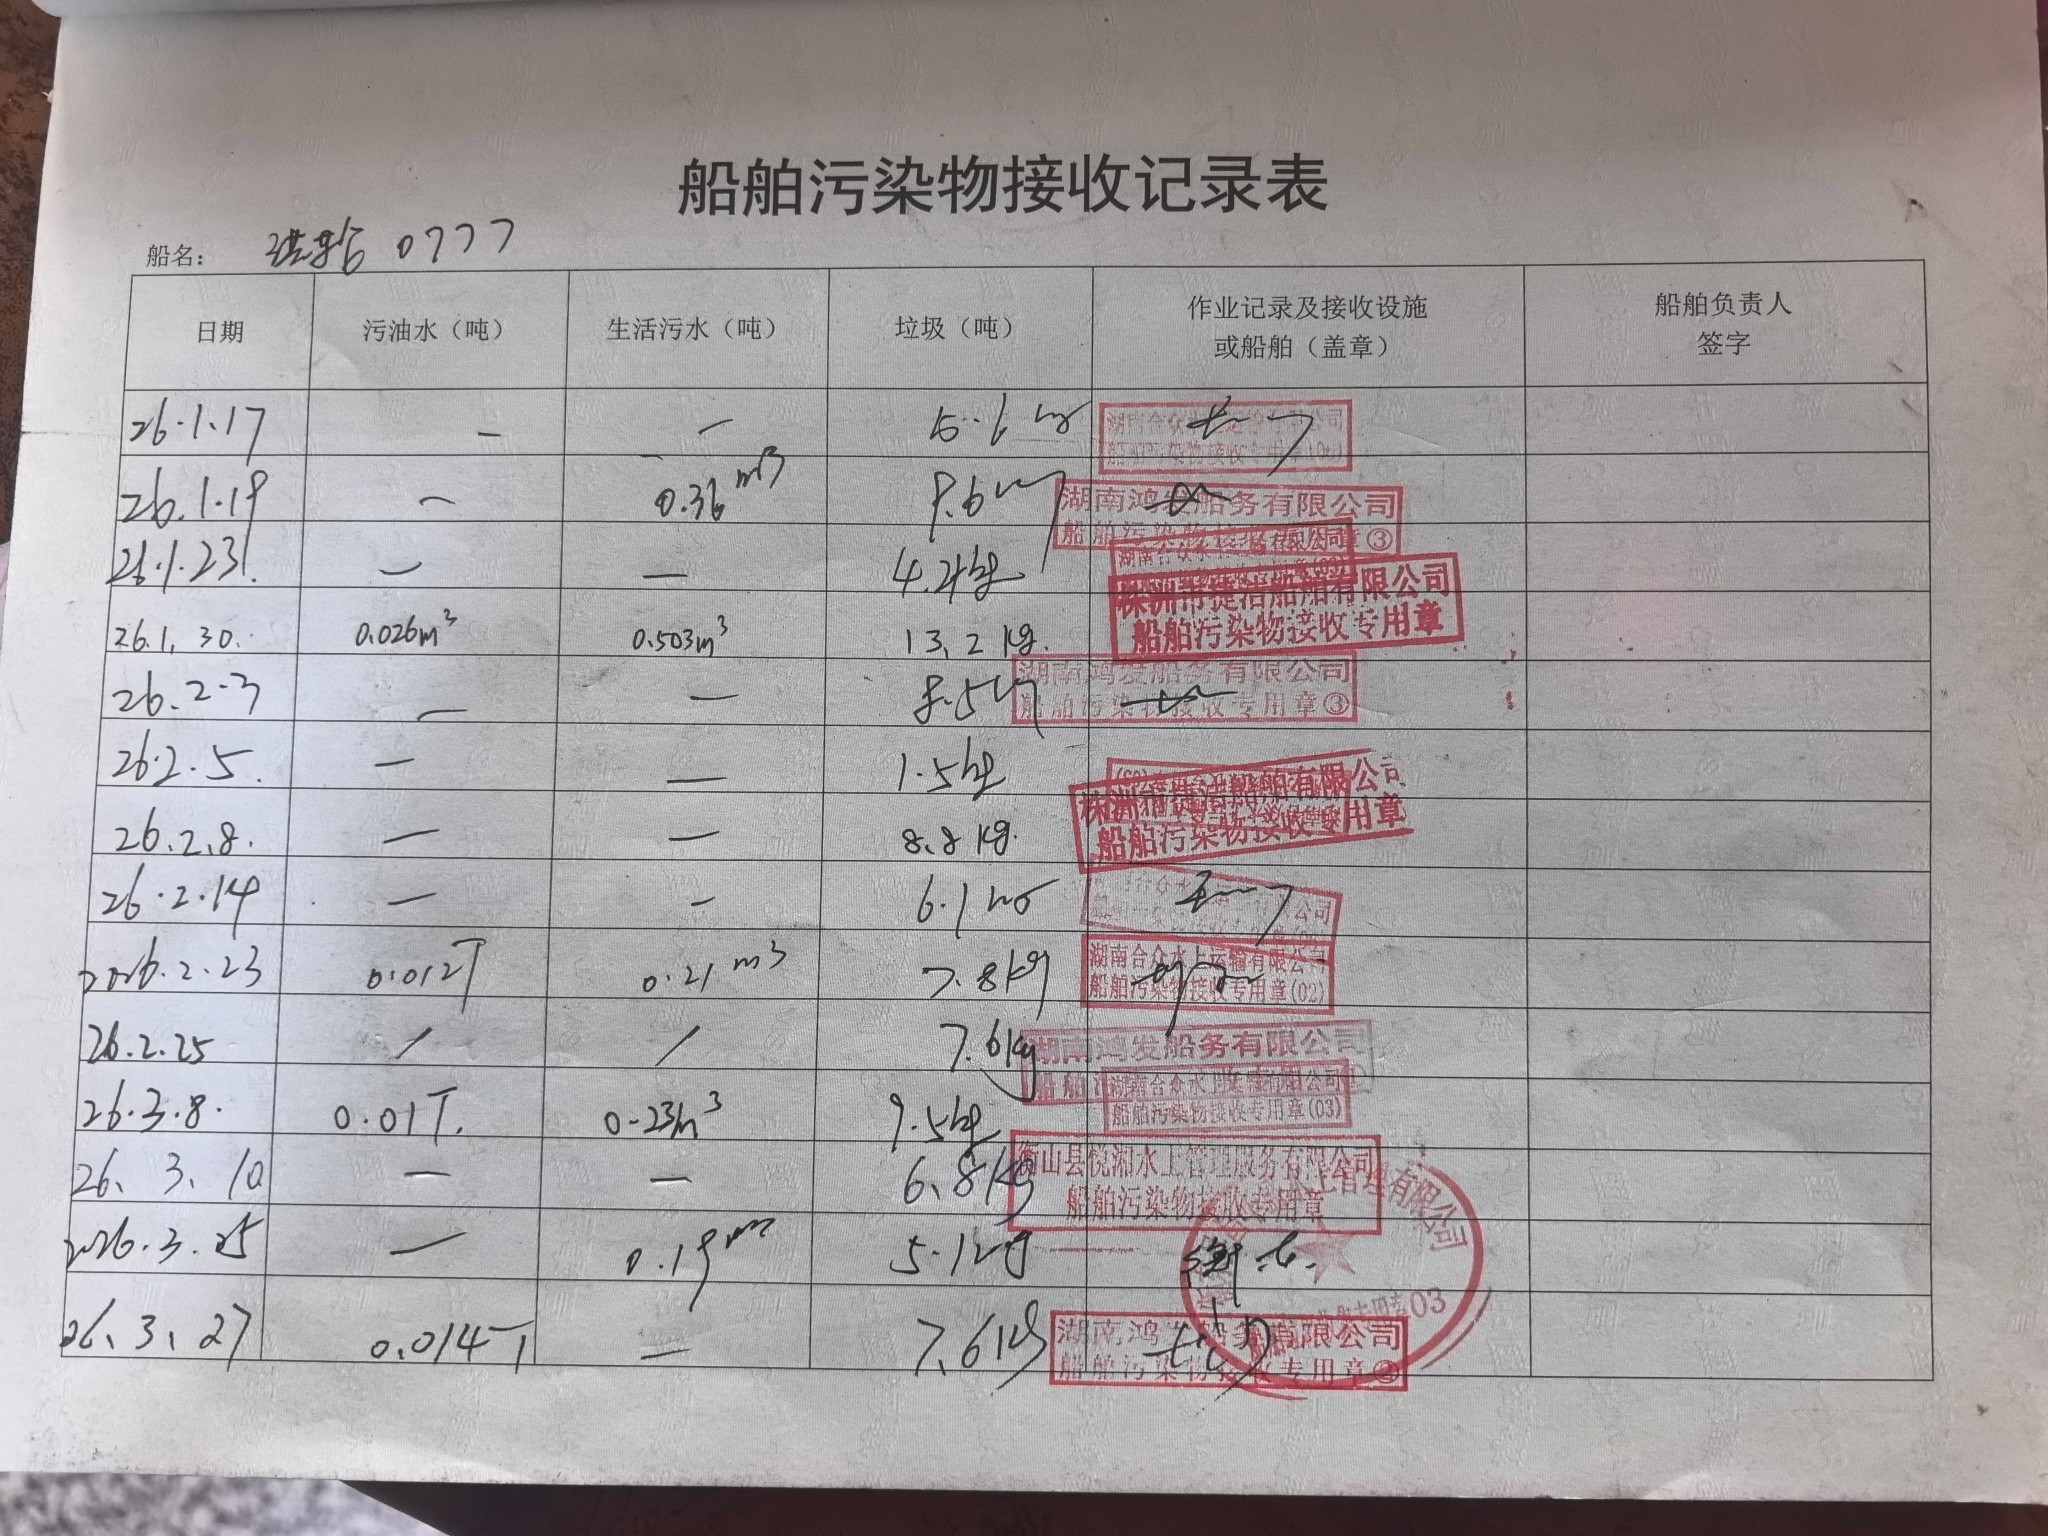 船舶污染物接收记录表
船名： 0777
日期 污油水（吨） 生活污水（吨） 垃圾（吨） 作业记录及接收设施或船舶（盖章） 船舶负责人签字
26.1.17 — — 5.6
湖南合众水上运输有限公司
船舶污染物接收专用章
26.1.19 — 0.36 m³ 8.6
湖南鸿发船务有限公司
船舶污染物接收专用章③
26.1.23. — — 4.2kg
湖南合众水上运输有限公司
26.1.30. 0.026m³ 0.503m³ 13.2 kg.
株洲市捷洁船舶有限公司
船舶污染物接收专用章
26.2.3 — — 8.5
湖南鸿发船务有限公司
船舶污染物接收专用章③
26.2.5. — — 1.5kg
26.2.8. — — 8.8 kg.
株洲市捷洁船舶有限公司
船舶污染物接收专用章
26.2.14 — — 6.1 kg
2026.2.23 0.012T 0.21 m³ 7.8kg
湖南合众水上运输有限公司
船舶污染物接收专用章(02)
26.2.25 / / 7.6kg
湖南鸿发船务有限公司
26.3.8. 0.01T. 0.23m³ 9.5kg
湖南合众水上运输有限公司
船舶污染物接收专用章(03)
26.3.10 — — 6.8kg
衡山县悦湘水上管理服务有限公司
船舶污染物接收专用章
2026.3.25 — 0.19 m³ 5.1kg
26.3.27 0.014T — 7.6kg
湖南鸿发船务有限公司
船舶污染物接收专用章